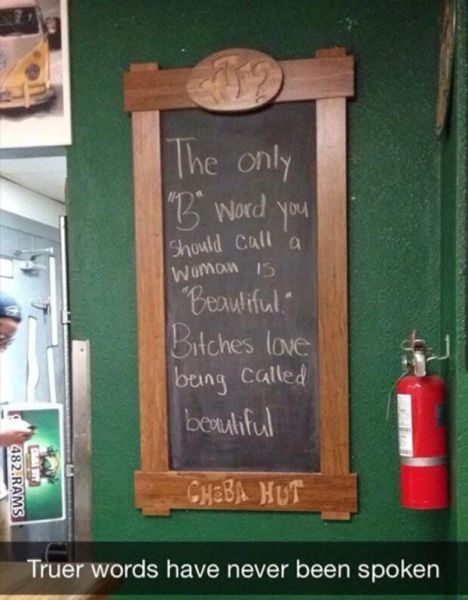 The only
"B" word you
should call a
woman is
"Beautiful."
Bitches love
being called
beautiful
CHEBA HUT
482.RAMS
Truer words have never been spoken